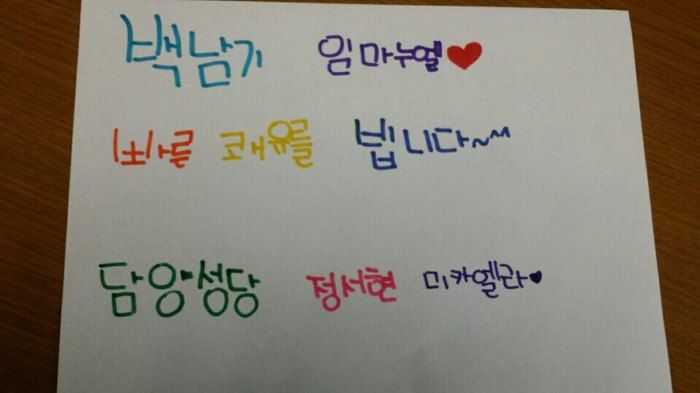 백남기 임마누엘♥
빠른 쾌유를 빕니다~^^
담양성당 정서현 미카엘라♥